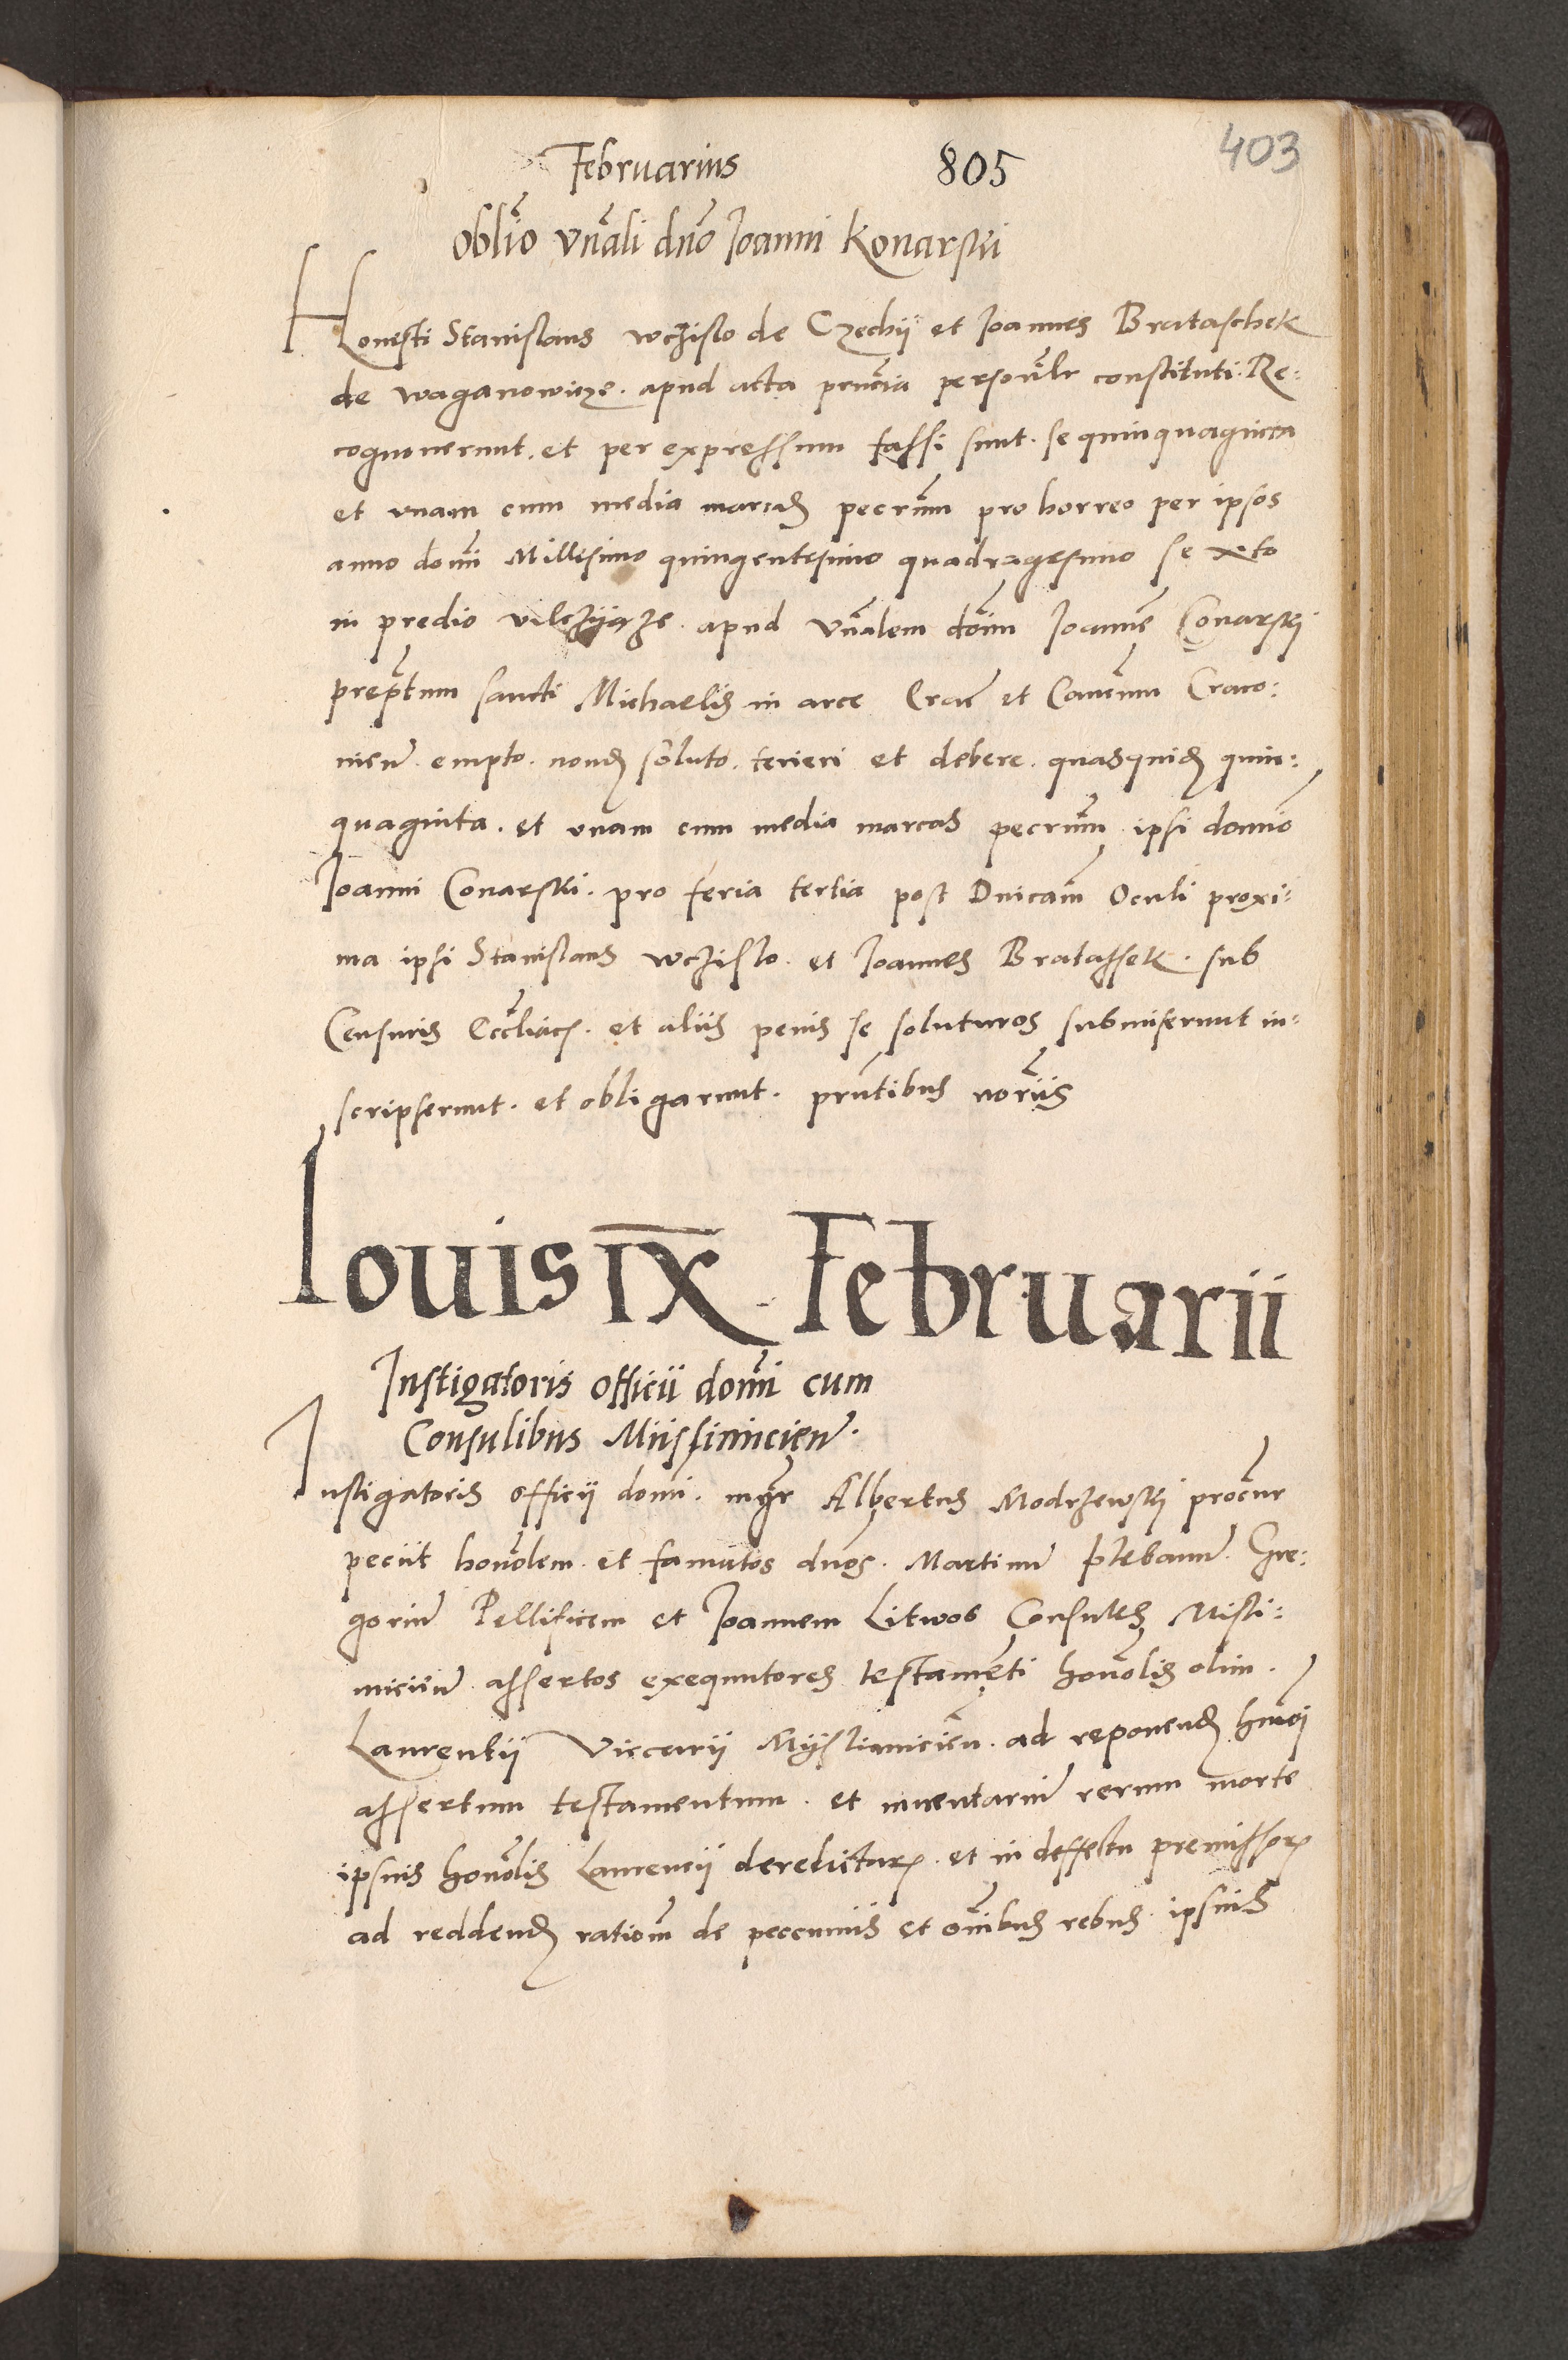 Februarius 805 403
Oblio vnali dno Ioanni Konarski
Honesti Stanislaus wczislo de Czechij et Ioannes Brataschek
de waganowicze. apud acta pruncia personalr constituti. Re:
cognouerunt. et per expressum fassi sunt. se quinquaginta
et vnam cum media marcas pecrum pro horreo per ipsos
anno domi Millesimo quingentesimo quadragesimo sexto
in predio apud vnalem domum Ioannem Conarski
prepstum sancti Michaelis in arce Crac et Canonicum Craco:
uien. empto. nondum soluto. teneri et debere. quasquidem quin:
quaginta. et vnam cum media marcas pecrum ipsi domino
Ioanni Conarski. pro feria tertia post Dnicam Oculi proxi:
ma ipsi Stanislaus wczislo. et Ioannes Bratassek. sub
Censuris Eccliacis. et aliis penis se soluturos submiserunt in:
scripserunt. et obligarunt. prntibus noriis
Iouis IX Februarii
Instigatoris officii domi cum
Consulibus Miislimicien.
Instigatoris officij domi. mgr Albertus Modrzewski procur
peciit honolem. et famatos duos. Martinum plebanum. Gre:
gorium Pellificem et Ioannem Litwos Consules Misli:
micien. assertos exequutores testamenti honolis olim.
Laurentii Viccarii Myslimicien. ad reponendum hmoi
assertum testamentum. et inuentarium rerum morte
ipsius honolis Laurencii derelictarum. et in deffectu premissorum
ad reddendum rationem de peccuniis et omnibus rebus ipsius